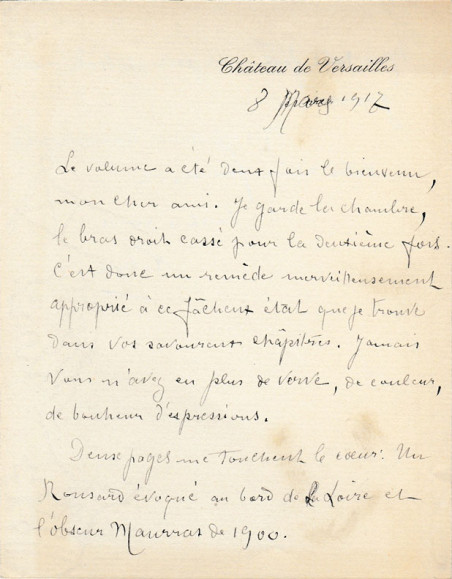 Château de Versailles
8 Mars 1917
Le volume a été deux fois le bienvenu,
mon cher ami. Je garde la chambre,
le bras droit cassé pour la deuxième fois.
C'est donc un remède merveilleusement
approprié à ce fâcheux état que je trouve
dans vos savoureux chapitres. Jamais
vous n'avez eu plus de verve, de couleur,
de bonheur d'expressions.
Deux pages me touchent le cœur : Un
Ronsard évoqué au bord de la Loire et
l'obscur Maurras de 1900.